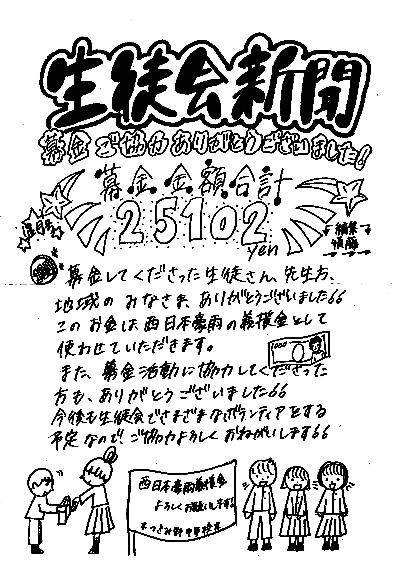 生徒会新聞
募金ご協力ありがとうございました!
募金金額合計
25102
yen
募金してくださった生徒さん、先生方、
地域のみなさま、ありがとうございました。。
このお金は西日本豪雨の義援金として
使わせていただきます。
1000
また、募金活動に協力してくださった
方も、ありがとうございました。。
今後も生徒会でさまざまなボランティアをする
予定なので、ご協力よろしくおねがいします。。
西日本豪雨義援金
よろしくお願いします!